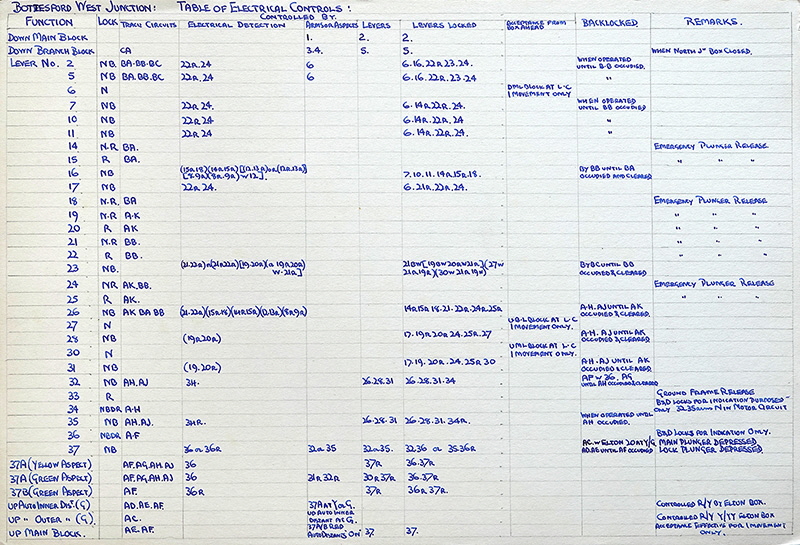 BOTTESFORD WEST JUNCTION: TABLE OF ELECTRICAL CONTROLS:
CONTROLLED BY.
FUNCTION LOCK TRACK CIRCUITS ELECTRICAL DETECTION ARMS OR ASPECTS LEVERS LEVERS LOCKED ACCEPTANCE FROM BOX AHEAD BACKLOCKED REMARKS.
DOWN MAIN BLOCK 1. 2. 2.
DOWN BRANCH BLOCK CA 3.4. 5. 5. WHEN NORTH Jn BOX CLOSED.
LEVER No. 2 NB. BA.BB.BC 22R.24 6 6.16.22R.23.24. WHEN OPERATED UNTIL B.B OCCUPIED.
5 NB BA.BB.BC 22R.24 6 6.16.22R.23.24 "
6 N DML BLOCK AT L-C 1 MOVEMENT ONLY
7 NB 22R.24. 6.14R.22R.24. WHEN OPERATED UNTIL BB OCCUPIED
10 NB 22R.24 6.14R.22R.24. "
11 NB 22R.24 6.14R.22R.24. "
14 N.R BA. EMERGENCY PLUNGER RELEASE
15 R BA. " " "
16 NB 7.10.11.14R.15R.18. BY BB UNTIL BA OCCUPIED AND CLEARED
17 NB 22R.24. 6.21R.22R.24.
18 N.R. BA EMERGENCY PLUNGER RELEASE
19 N.R A.K " " "
20 R AK " " "
21 N.R BB. " " "
22 R BB. " " "
23 NB. BY BC UNTIL BB OCCUPIED & CLEARED
24 NR AK.BB. EMERGENCY PLUNGER RELEASE
25 R AK. " " "
26 NB AK BA BB 14R 15R.18.21.22R.24R.25R A-H. AJ UNTIL AK OCCUPIED & CLEARED.
27 N U.B.L BLOCK AT L-C 1 MOVEMENT ONLY.
28 NB (19R 20R) 17.19R 20R.24.25R.27 A-H. AJ UNTIL AK OCCUPIED & CLEARED
30 N UML BLOCK AT L-C 1 MOVEMENT ONLY.
31 NB (19.20R) 17.19.20R.24.25R 30 A.H. AJ UNTIL AK OCCUPIED & CLEARED
32 NB AH.AJ 34. 26.28.31 26.28.31.34 AF W 36. AG UNTIL AH OCCUPIED & CLEARED
33 R GROUND FRAME RELEASE
34 NBDR A-H B&D LOCKS FOR INDICATION PURPOSES ONLY. 32.35 N IN MOTOR CIRCUIT
35 NB AH.AJ. 34R. 26.28.31 26.28.31.34R. WHEN OPERATED UNTIL AH OCCUPIED.
36 NBDR A-F B&D LOCKS FOR INDICATION ONLY.
37 NB 36 OR 36R 32 OR 35 32 OR 35. 32.36 OR 35.36R AD.AE UNTIL AF OCCUPIED MAIN PLUNGER DEPRESSED LOCK PLUNGER DEPRESSED
37A (YELLOW ASPECT) AF.AG.AH.AJ 36 37R 36.37R
37A (GREEN ASPECT) AF.AG.AH.AJ 36 21R 32R 30R 37R 36.37R
37B (GREEN ASPECT) AF. 36R 37R 36R 37R.
UP AUTO INNER DIST. (G) AD.AE.AF. 37A AT Y OR G. CONTROLLED R/Y BY ELTON BOX.
UP " OUTER " (G). AC. UP AUTO INNER DISTANT AT G. CONTROLLED R/Y Y/YY ELTON BOX
UP MAIN BLOCK. AE.AF. 37A/B RED AUTO DISTANTS ON 37. 37. ACCEPTANCE EFFECTIVE FOR 1 MOVEMENT ONLY.